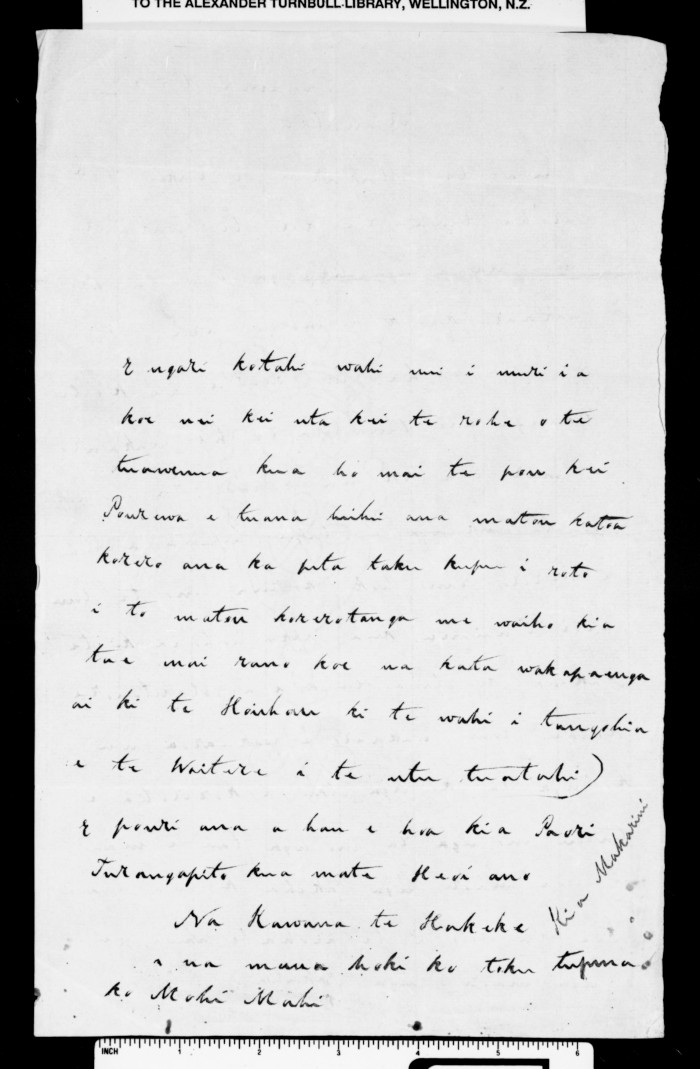 TO THE ALEXANDER TURNBULL LIBRARY, WELLINGTON, N.Z.
E ngari kotahi wahi nui i muri i a
koe nei kei uta kei te rohe o te
tuawenua kua ho mai te pou kei
Pourewa e tuana huihui ana matou katoa
korero ana ka puta taku kupu i roto
i to matou korerotanga me waiho kia
tae mai rano koe na kata wakapaenga
ai ki te Hauhau ki te wahi i tangohia
e te Waitere i te utu tuatahi)
E pouri ana a hau e hoa kia Paori
Turangapito kua mate Heoi ano
Na Kawana te Hakeke
e na mana hoki ko toku tupuna
ko Mohi Mahi
Ki a Makarini
INCH 1 2 3 4 5 6